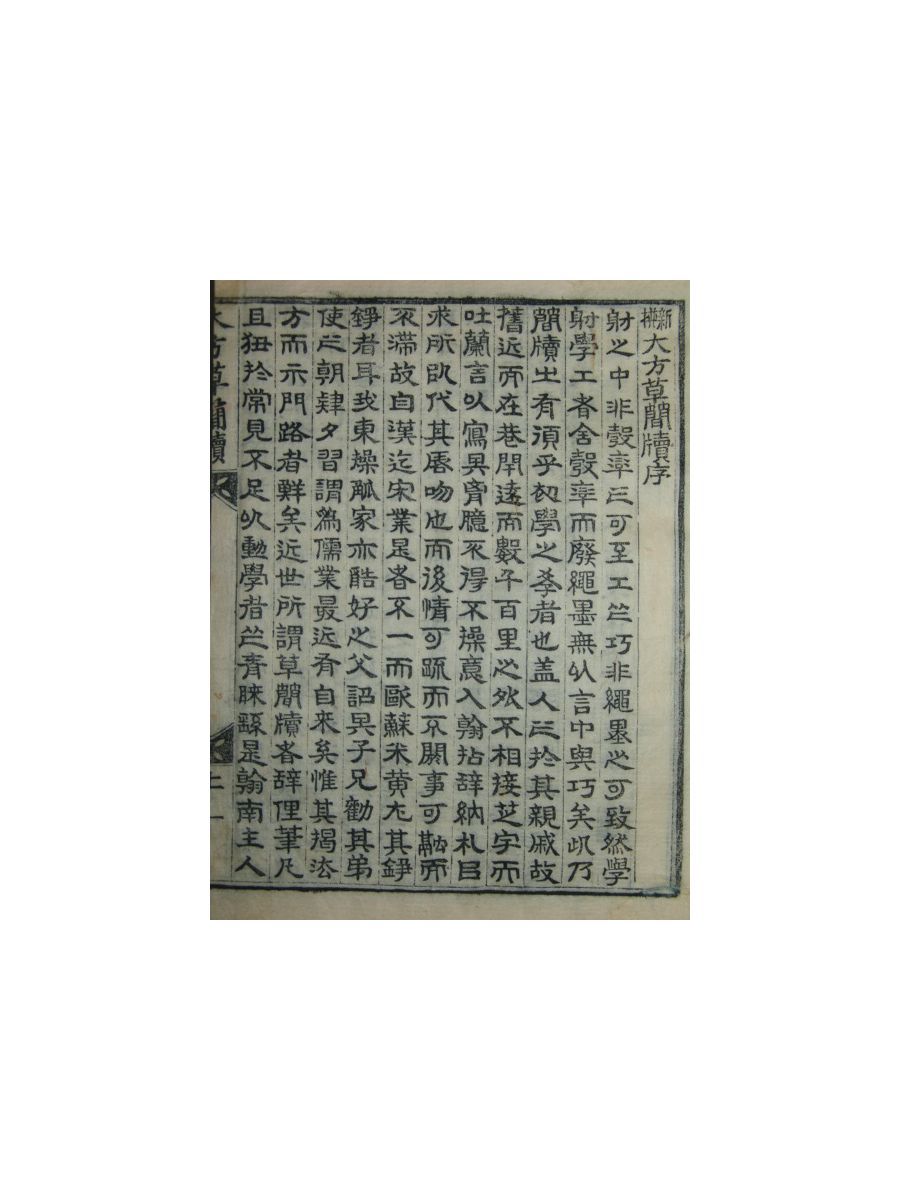 新槧大方草簡牘序
射之中非彀率亡可至工竺巧非繩墨之可致然學
射學工者舍彀率而廢繩墨無以言中與巧矣此乃
簡牘之有須乎初學之孝者也盖人亡於其親戚故
舊近而在巷閈遠而數千百里之外不相接芝宇而
吐蘭言以寫其胷臆不得不操意入翰拈辞納札且
求所以代其唇吻也而後情可疏而不閼事可融而
不滯故自漢迄宋業是者不一而歐蘇米黄尤其錚
錚者耳我東操觚家亦酷好之父詔其子兄勸其弟
使之朝肄夕習謂為儒業最近有自来矣惟其揭法
方而示門路者鮮矣近世所謂草簡牘者辞俚筆凡
且狃於常見不足以勤學者竺青睐繇是翰南主人
大方草簡牘
上
一